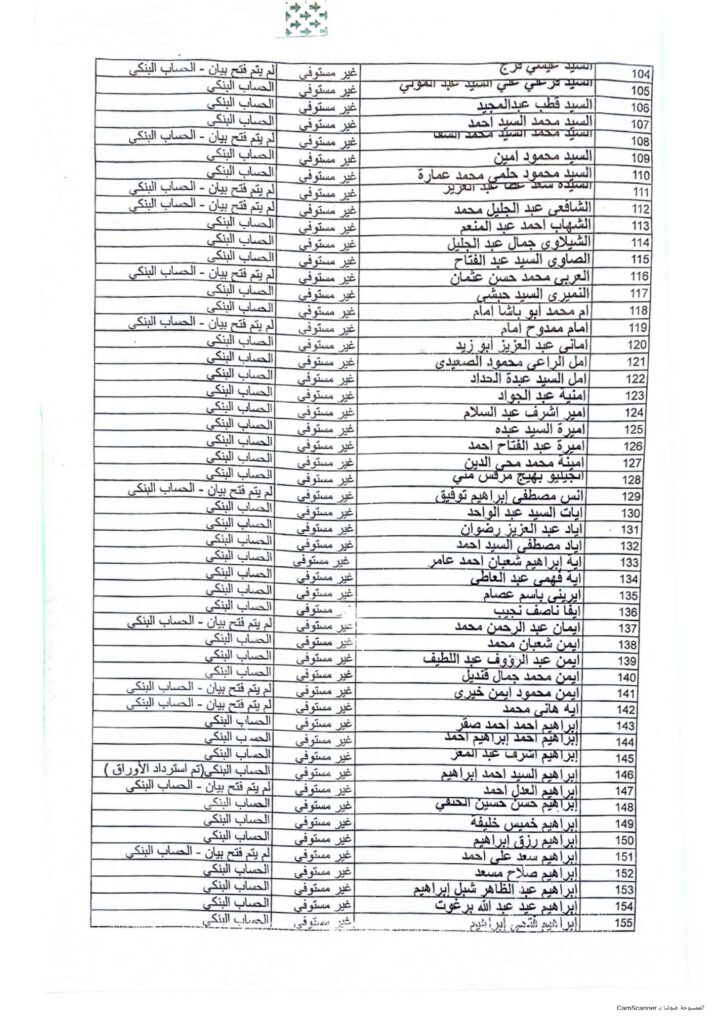 104 السيد عيسي فرج غير مستوفي لم يتم فتح بيان - الحساب البنكي
105 السيد فرغلي علي السيد عبد المولي غير مستوفي الحساب البنكي
106 السيد قطب عبدالمجيد غير مستوفي الحساب البنكي
107 السيد محمد السيد احمد غير مستوفي الحساب البنكي
108 السيد محمد السيد محمد السقا غير مستوفي لم يتم فتح بيان - الحساب البنكي
109 السيد محمود امين غير مستوفي الحساب البنكي
110 السيد محمود حلمي محمد عمارة غير مستوفي الحساب البنكي
111 السيده سعد عطا عبد العزيز غير مستوفي لم يتم فتح بيان - الحساب البنكي
112 الشافعي عبد الجليل محمد غير مستوفي لم يتم فتح بيان - الحساب البنكي
113 الشهاب احمد عبد المنعم غير مستوفي الحساب البنكي
114 الشيلاوي جمال عبد الجليل غير مستوفي الحساب البنكي
115 الصاوي السيد عبد الفتاح غير مستوفي الحساب البنكي
116 العربي محمد حسن عثمان غير مستوفي لم يتم فتح بيان - الحساب البنكي
117 النميري السيد حبشي غير مستوفي الحساب البنكي
118 ام محمد ابو باشا امام غير مستوفي الحساب البنكي
119 امام ممدوح امام غير مستوفي لم يتم فتح بيان - الحساب البنكي
120 اماني عبد العزيز ابو زيد غير مستوفي الحساب البنكي
121 امل الراعي محمود الصعيدي غير مستوفي الحساب البنكي
122 امل السيد عبدة الحداد غير مستوفي الحساب البنكي
123 امنية عبد الجواد غير مستوفي الحساب البنكي
124 امير اشرف عبد السلام غير مستوفي الحساب البنكي
125 اميرة السيد عبده غير مستوفي الحساب البنكي
126 اميرة عبد الفتاح احمد غير مستوفي الحساب البنكي
127 امينة محمد محي الدين غير مستوفي الحساب البنكي
128 انجيليو بهيج مرقس متي غير مستوفي الحساب البنكي
129 انس مصطفى إبراهيم توفيق غير مستوفي لم يتم فتح بيان - الحساب البنكي
130 ايات السيد عبد الواحد غير مستوفي الحساب البنكي
131 اياد عبد العزيز رضوان غير مستوفي الحساب البنكي
132 اياد مصطفى السيد احمد غير مستوفي الحساب البنكي
133 اية إبراهيم شعبان احمد عامر غير مستوفي الحساب البنكي
134 اية فهمي عبد العاطي غير مستوفي الحساب البنكي
135 ايريني باسم عصام غير مستوفي الحساب البنكي
136 ايفا ناصف نجيب مستوفي الحساب البنكي
137 ايمان عبد الرحمن محمد غير مستوفي لم يتم فتح بيان - الحساب البنكي
138 ايمن شعبان محمد غير مستوفي الحساب البنكي
139 ايمن عبد الرؤوف عبد اللطيف غير مستوفي الحساب البنكي
140 ايمن محمد جمال قنديل غير مستوفي الحساب البنكي
141 ايمن محمود ايمن خيرى غير مستوفي لم يتم فتح بيان - الحساب البنكي
142 ايه هاني محمد غير مستوفي لم يتم فتح بيان - الحساب البنكي
143 إبراهيم احمد احمد صقر غير مستوفي الحساب البنكي
144 إبراهيم احمد إبراهيم احمد غير مستوفي الحساب البنكي
145 إبراهيم اشرف عبد المعز غير مستوفي الحساب البنكي
146 إبراهيم السيد احمد إبراهيم غير مستوفي الحساب البنكي(تم استرداد الأوراق )
147 إبراهيم العدل احمد غير مستوفي لم يتم فتح بيان - الحساب البنكي
148 إبراهيم حسن حسين الحنفي غير مستوفي الحساب البنكي
149 إبراهيم خميس خليفة غير مستوفي الحساب البنكي
150 إبراهيم رزق إبراهيم غير مستوفي الحساب البنكي
151 إبراهيم سعد على احمد غير مستوفي لم يتم فتح بيان - الحساب البنكي
152 إبراهيم صلاح مسعد غير مستوفي الحساب البنكي
153 إبراهيم عبد الظاهر شبل إبراهيم غير مستوفي الحساب البنكي
154 إبراهيم عيد عبد الله برغوت غير مستوفي الحساب البنكي
155 إبراهيم فتحي إبراهيم غير مستوفي الحساب البنكي
الممسوحة ضوئيا بـ CamScanner